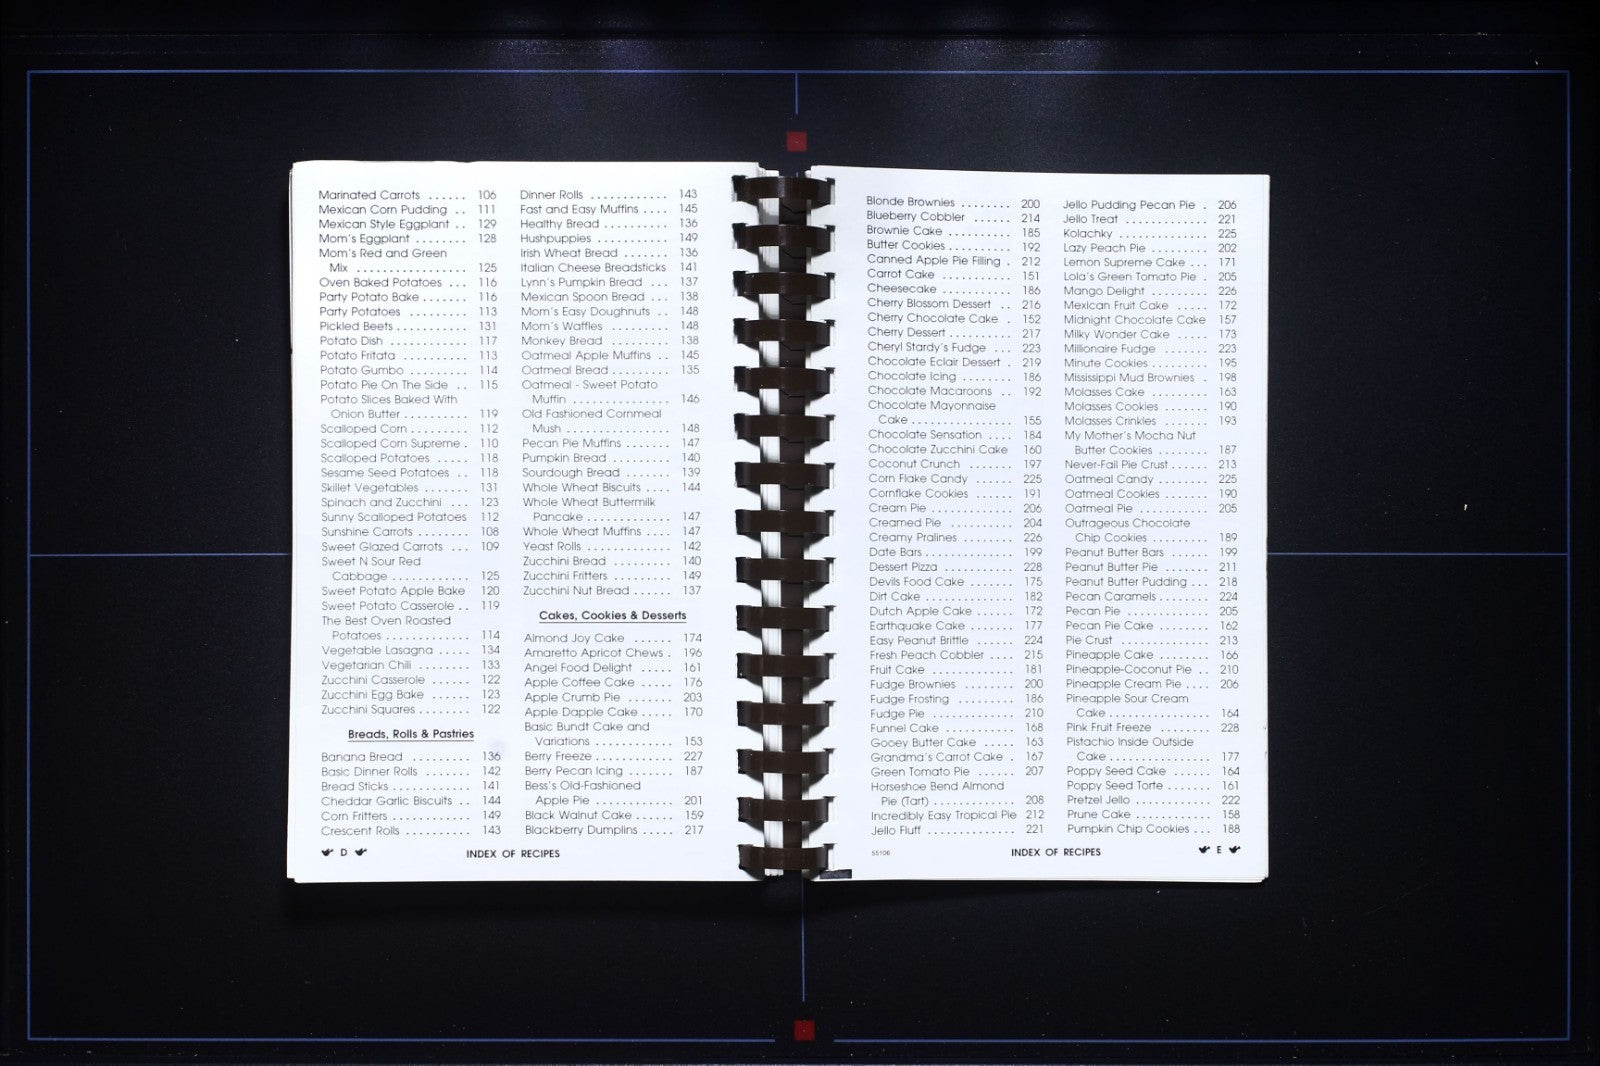 Marinated Carrots ...... 106
Mexican Corn Pudding .. 111
Mexican Style Eggplant .. 129
Mom's Eggplant ........ 128
Mom's Red and Green
Mix ................. 125
Oven Baked Potatoes ... 116
Party Potato Bake ....... 116
Party Potatoes .......... 113
Pickled Beets ........... 131
Potato Dish ............. 117
Potato Fritata ........... 113
Potato Gumbo ......... 114
Potato Pie On The Side .. 115
Potato Slices Baked With
Onion Butter .......... 119
Scalloped Corn ......... 112
Scalloped Corn Supreme . 110
Scalloped Potatoes ..... 118
Sesame Seed Potatoes .. 118
Skillet Vegetables ....... 131
Spinach and Zucchini ... 123
Sunny Scalloped Potatoes 112
Sunshine Carrots ........ 108
Sweet Glazed Carrots ... 109
Sweet N Sour Red
Cabbage ............ 125
Sweet Potato Apple Bake 120
Sweet Potato Casserole .. 119
The Best Oven Roasted
Potatoes ............. 114
Vegetable Lasagna ..... 134
Vegetarian Chili ........ 133
Zucchini Casserole ...... 122
Zucchini Egg Bake ...... 123
Zucchini Squares ........ 122
Breads, Rolls & Pastries
Banana Bread ......... 136
Basic Dinner Rolls ....... 142
Bread Sticks ............ 141
Cheddar Garlic Biscuits .. 144
Corn Fritters ............ 149
Crescent Rolls .......... 143
Dinner Rolls ............ 143
Fast and Easy Muffins .... 145
Healthy Bread .......... 136
Hushpuppies ........... 149
Irish Wheat Bread ....... 136
Italian Cheese Breadsticks 141
Lynn's Pumpkin Bread ... 137
Mexican Spoon Bread ... 138
Mom's Easy Doughnuts .. 148
Mom's Waffles ......... 148
Monkey Bread ......... 138
Oatmeal Apple Muffins .. 145
Oatmeal Bread ......... 135
Oatmeal - Sweet Potato
Muffin ............... 146
Old Fashioned Cornmeal
Mush ................ 148
Pecan Pie Muffins ....... 147
Pumpkin Bread ......... 140
Sourdough Bread ....... 139
Whole Wheat Biscuits .... 144
Whole Wheat Buttermilk
Pancake ............. 147
Whole Wheat Muffins .... 147
Yeast Rolls ............. 142
Zucchini Bread ......... 140
Zucchini Fritters ......... 149
Zucchini Nut Bread ...... 137
Cakes, Cookies & Desserts
Almond Joy Cake ...... 174
Amaretto Apricot Chews . 196
Angel Food Delight ..... 161
Apple Coffee Cake ..... 176
Apple Crumb Pie ....... 203
Apple Dapple Cake ..... 170
Basic Bundt Cake and
Variations ............ 153
Berry Freeze ........... 227
Berry Pecan Icing ....... 187
Bess's Old-Fashioned
Apple Pie ............ 201
Black Walnut Cake ...... 159
Blackberry Dumplins ..... 217
D INDEX OF RECIPES
Blonde Brownies ........ 200
Blueberry Cobbler ....... 214
Brownie Cake .......... 185
Butter Cookies .......... 192
Canned Apple Pie Filling . 212
Carrot Cake ........... 151
Cheesecake ........... 186
Cherry Blossom Dessert .. 216
Cherry Chocolate Cake . 152
Cherry Dessert .......... 217
Cheryl Stardy's Fudge ... 223
Chocolate Eclair Dessert . 219
Chocolate Icing ........ 186
Chocolate Macaroons .. 192
Chocolate Mayonnaise
Cake ............... 155
Chocolate Sensation .... 184
Chocolate Zucchini Cake 160
Coconut Crunch ....... 197
Corn Flake Candy ...... 225
Cornflake Cookies ...... 191
Cream Pie ............. 206
Creamed Pie .......... 204
Creamy Pralines ........ 226
Date Bars .............. 199
Dessert Pizza ........... 228
Devils Food Cake ....... 175
Dirt Cake .............. 182
Dutch Apple Cake ...... 172
Earthquake Cake ....... 177
Easy Peanut Brittle ...... 224
Fresh Peach Cobbler .... 215
Fruit Cake ............. 181
Fudge Brownies ........ 200
Fudge Frosting ......... 186
Fudge Pie ............. 210
Funnel Cake ........... 168
Gooey Butter Cake ..... 163
Grandma's Carrot Cake . 167
Green Tomato Pie ...... 207
Horseshoe Bend Almond
Pie (Tart) ............. 208
Incredibly Easy Tropical Pie 212
Jello Fluff .............. 221
Jello Pudding Pecan Pie . 206
Jello Treat ............. 221
Kolachky .............. 225
Lazy Peach Pie ......... 202
Lemon Supreme Cake ... 171
Lola's Green Tomato Pie . 205
Mango Delight ......... 226
Mexican Fruit Cake ..... 172
Midnight Chocolate Cake 157
Milky Wonder Cake ..... 173
Millionaire Fudge ....... 223
Minute Cookies ......... 195
Mississippi Mud Brownies . 198
Molasses Cake ......... 163
Molasses Cookies ....... 190
Molasses Crinkles ....... 193
My Mother's Mocha Nut
Butter Cookies ........ 187
Never-Fail Pie Crust ...... 213
Oatmeal Candy ........ 225
Oatmeal Cookies ....... 190
Oatmeal Pie ........... 205
Outrageous Chocolate
Chip Cookies ......... 189
Peanut Butter Bars ...... 199
Peanut Butter Pie ....... 211
Peanut Butter Pudding ... 218
Pecan Caramels ........ 224
Pecan Pie ............. 205
Pecan Pie Cake ........ 162
Pie Crust .............. 213
Pineapple Cake ........ 166
Pineapple-Coconut Pie .. 210
Pineapple Cream Pie .... 206
Pineapple Sour Cream
Cake ............... 164
Pink Fruit Freeze ........ 228
Pistachio Inside Outside
Cake ............... 177
Poppy Seed Cake ...... 164
Poppy Seed Torte ....... 161
Pretzel Jello ........... 222
Prune Cake ............ 158
Pumpkin Chip Cookies ... 188
55106 INDEX OF RECIPES E